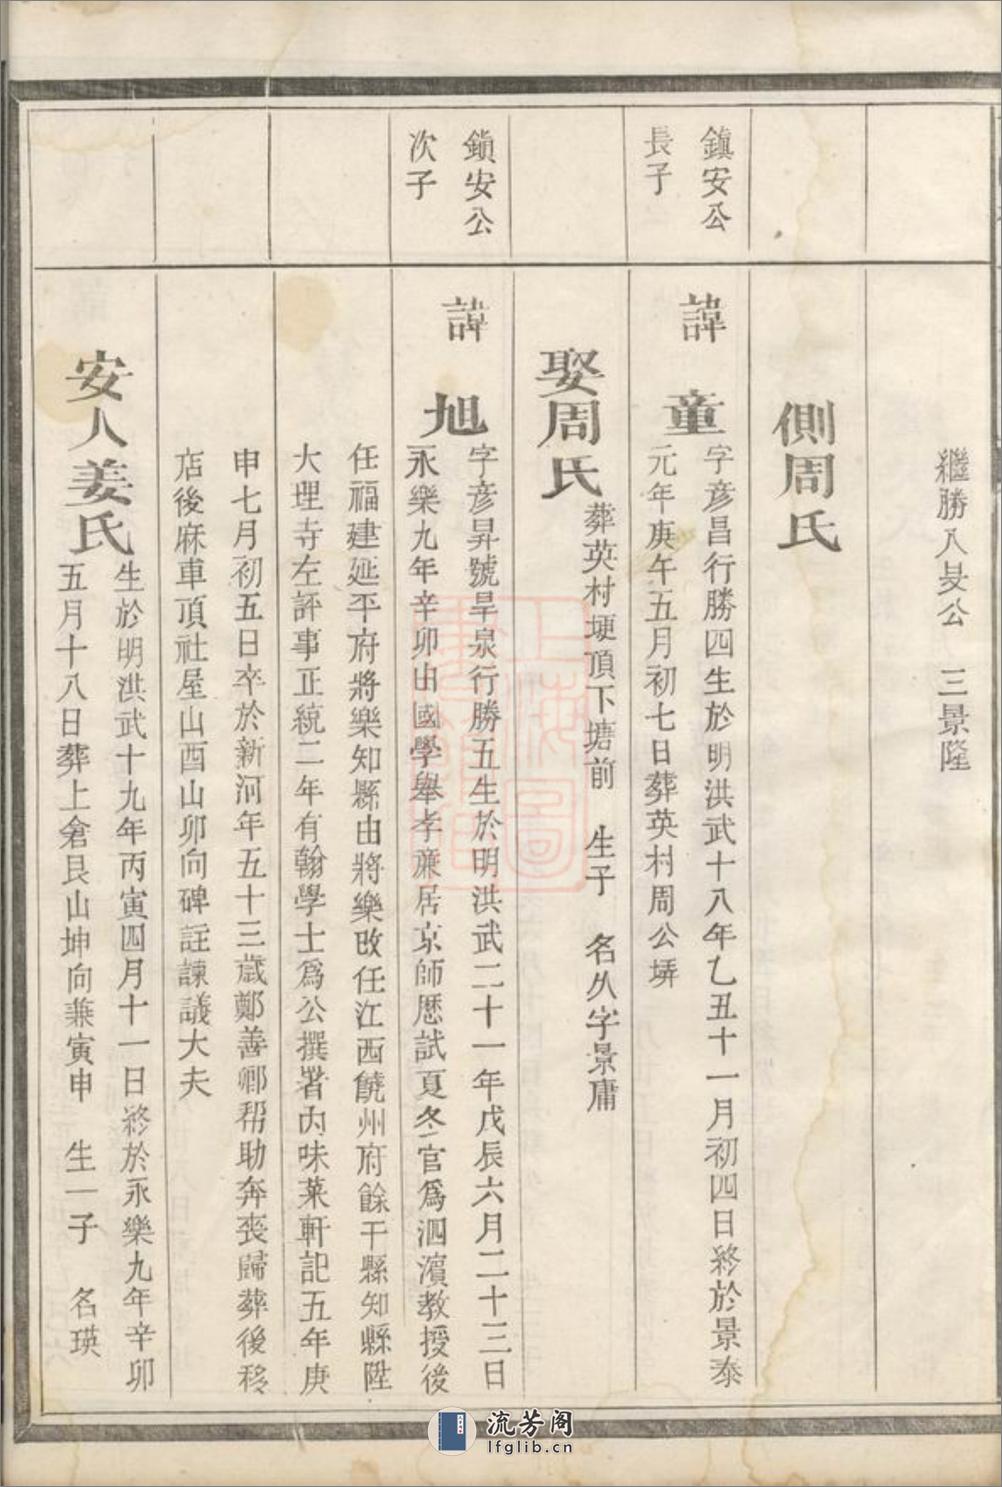 繼勝八旻公　三景隆
側周氏
鎮安公
長子
諱　童
字彥昌行勝四生於明洪武十八年乙丑十一月初四日終於景泰
元年庚午五月初七日葬英村周公塝
娶周氏
葬英村埂頂下塘前　生子　名久字景庸
鎮安公
次子
諱　旭
字彥昇號旱泉行勝五生於明洪武二十一年戊辰六月二十三日
永樂九年辛卯由國學舉孝廉居京師歷試夏冬二官爲泗濱教授後
任福建延平府將樂知縣由將樂改任江西饒州府餘干縣知縣陞
大理寺左評事正統二年有翰學士爲公撰署內味菜軒記五年庚
申七月初五日卒於新河年五十三歲鄭善卿帮助奔喪歸葬後移
店後麻車頂社屋山酉山卯向碑註諫議大夫
安人姜氏
生於明洪武十九年丙寅四月十一日終於永樂九年辛卯
五月十八日葬上倉艮山坤向兼寅申　生一子　名瑛
流芳阁
lfglib.cn